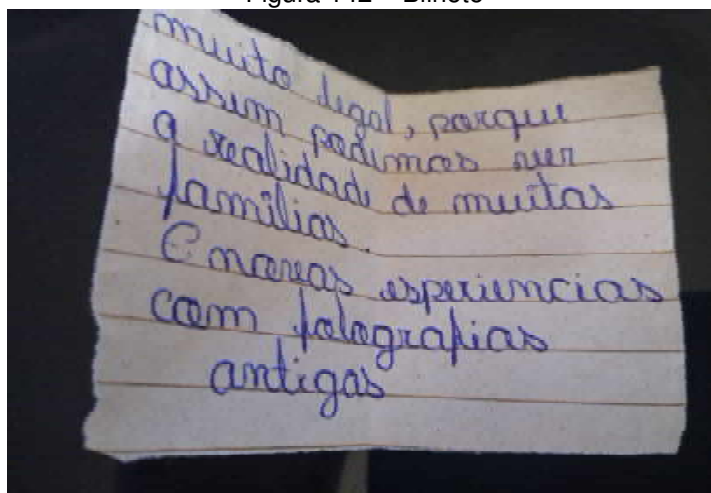 muito legal, porque
assim podemos ver
a realidade de muitas
famílias.
E novas esperiencias
com fotografias
antigas